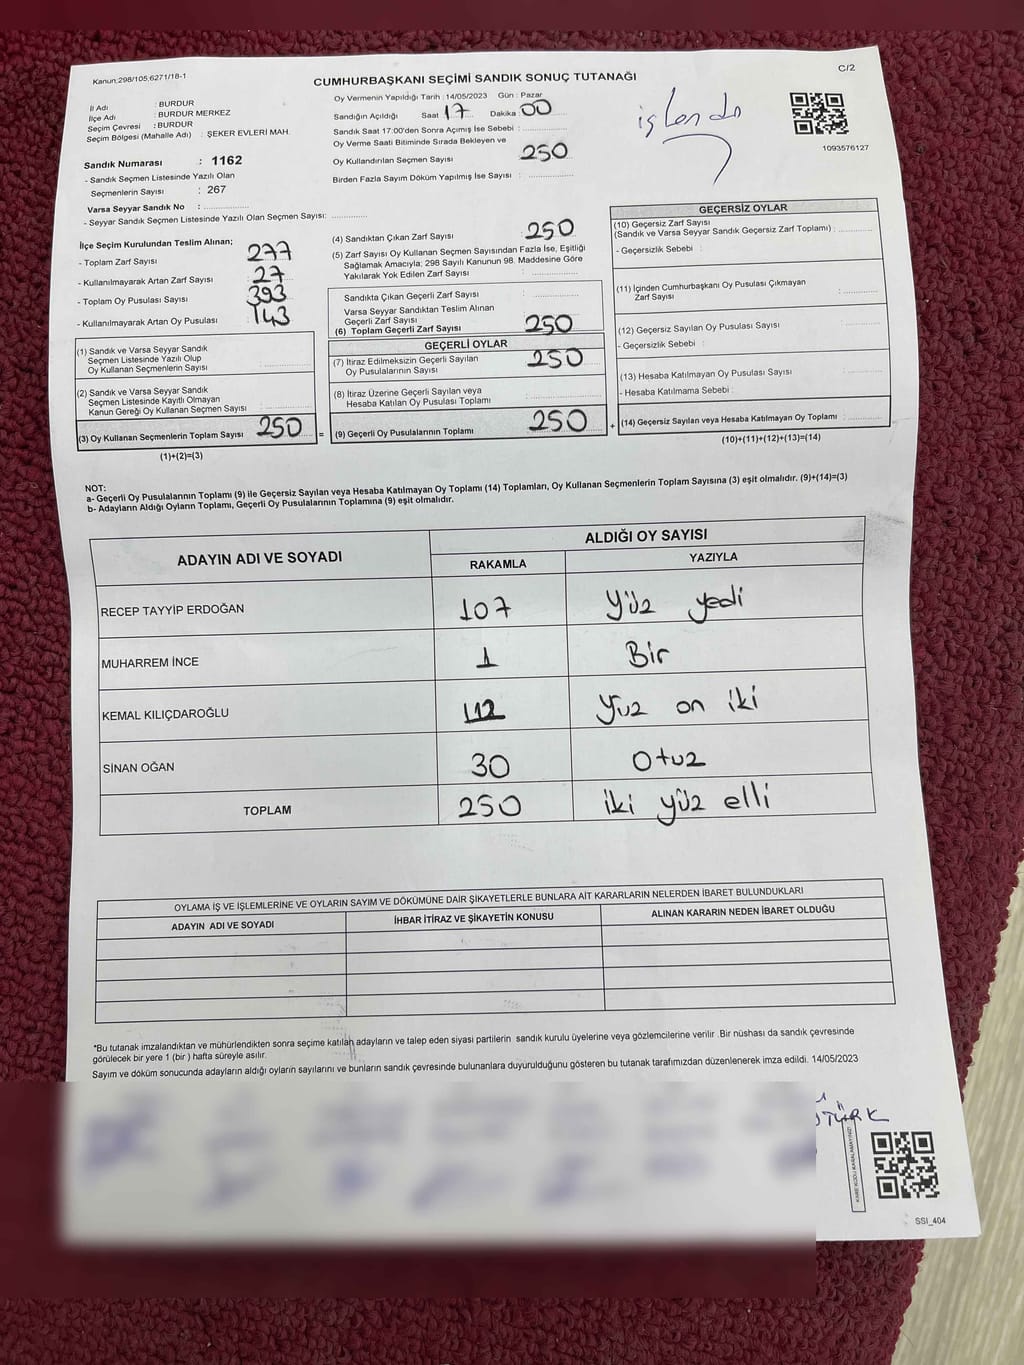 Kanun:298/105,6271/18-1
C/2
CUMHURBAŞKANI SEÇİMİ SANDIK SONUÇ TUTANAĞI
İl Adı : BURDUR
İlçe Adı : BURDUR MERKEZ
Seçim Çevresi : BURDUR
Seçim Bölgesi (Mahalle Adı) : ŞEKER EVLERİ MAH.
Sandık Numarası : 1162
- Sandık Seçmen Listesinde Yazılı Olan
Seçmenlerin Sayısı : 267
Varsa Seyyar Sandık No :
- Seyyar Sandık Seçmen Listesinde Yazılı Olan Seçmen Sayısı:
Oy Vermenin Yapıldığı Tarih : 14/05/2023 Gün : Pazar
Sandığın Açıldığı Saat 17 Dakika 00
Sandık Saat 17:00'den Sonra Açımış İse Sebebi :
Oy Verme Saati Bitiminde Sırada Bekleyen ve
Oy Kullandırılan Seçmen Sayısı 250
Birden Fazla Sayım Döküm Yapılmış İse Sayısı :
işlendi
1093576127
İlçe Seçim Kurulundan Teslim Alınan;
- Toplam Zarf Sayısı : 277
- Kullanılmayarak Artan Zarf Sayısı : 27
- Toplam Oy Pusulası Sayısı : 393
- Kullanılmayarak Artan Oy Pusulası : 143
(1) Sandık ve Varsa Seyyar Sandık
Seçmen Listesinde Yazılı Olup
Oy Kullanan Seçmenlerin Sayısı :
(2) Sandık ve Varsa Seyyar Sandık
Seçmen Listesinde Kayıtlı Olmayan
Kanun Gereği Oy Kullanan Seçmen Sayısı :
(3) Oy Kullanan Seçmenlerin Toplam Sayısı 250 =
(1)+(2)=(3)
(4) Sandıktan Çıkan Zarf Sayısı : 250
(5) Zarf Sayısı Oy Kullanan Seçmen Sayısından Fazla İse, Eşitliği
Sağlamak Amacıyla; 298 Sayılı Kanunun 98. Maddesine Göre
Yakılarak Yok Edilen Zarf Sayısı :
Sandıkta Çıkan Geçerli Zarf Sayısı :
Varsa Seyyar Sandıktan Teslim Alınan
Geçerli Zarf Sayısı :
(6) Toplam Geçerli Zarf Sayısı : 250
GEÇERLİ OYLAR
(7) İtiraz Edilmeksizin Geçerli Sayılan
Oy Pusulalarının Sayısı : 250
(8) İtiraz Üzerine Geçerli Sayılan veya
Hesaba Katılan Oy Pusulası Toplamı :
(9) Geçerli Oy Pusulalarının Toplamı : 250 +
GEÇERSİZ OYLAR
(10) Geçersiz Zarf Sayısı
(Sandık ve Varsa Seyyar Sandık Geçersiz Zarf Toplamı) :
- Geçersizlik Sebebi :
(11) İçinden Cumhurbaşkanı Oy Pusulası Çıkmayan
Zarf Sayısı :
(12) Geçersiz Sayılan Oy Pusulası Sayısı :
- Geçersizlik Sebebi :
(13) Hesaba Katılmayan Oy Pusulası Sayısı :
- Hesaba Katılmama Sebebi :
(14) Geçersiz Sayılan veya Hesaba Katılmayan Oy Toplamı :
(10)+(11)+(12)+(13)=(14)
NOT:
a- Geçerli Oy Pusulalarının Toplamı (9) ile Geçersiz Sayılan veya Hesaba Katılmayan Oy Toplamı (14) Toplamları, Oy Kullanan Seçmenlerin Toplam Sayısına (3) eşit olmalıdır. (9)+(14)=(3)
b- Adayların Aldığı Oyların Toplamı, Geçerli Oy Pusulalarının Toplamına (9) eşit olmalıdır.
ADAYIN ADI VE SOYADI
ALDIĞI OY SAYISI
RAKAMLA YAZIYLA
RECEP TAYYİP ERDOĞAN 107 Yüz yedi
MUHARREM İNCE 1 Bir
KEMAL KILIÇDAROĞLU 112 Yüz on iki
SİNAN OĞAN 30 Otuz
TOPLAM 250 iki yüz elli
OYLAMA İŞ VE İŞLEMLERİNE VE OYLARIN SAYIM VE DÖKÜMÜNE DAİR ŞİKAYETLERLE BUNLARA AİT KARARLARIN NELERDEN İBARET BULUNDUKLARI
ADAYIN ADI VE SOYADI İHBAR İTİRAZ VE ŞİKAYETİN KONUSU ALINAN KARARIN NEDEN İBARET OLDUĞU
*Bu tutanak imzalandıktan ve mühürlendikten sonra seçime katılan adayların ve talep eden siyasi partilerin sandık kurulu üyelerine veya gözlemcilerine verilir .Bir nüshası da sandık çevresinde
görülecek bir yere 1 (bir ) hafta süreyle asılır.
Sayım ve döküm sonucunda adayların aldığı oyların sayılarını ve bunların sandık çevresinde bulunanlara duyurulduğunu gösteren bu tutanak tarafımızdan düzenlenerek imza edildi. 14/05/2023
TÜRK
SSI_404